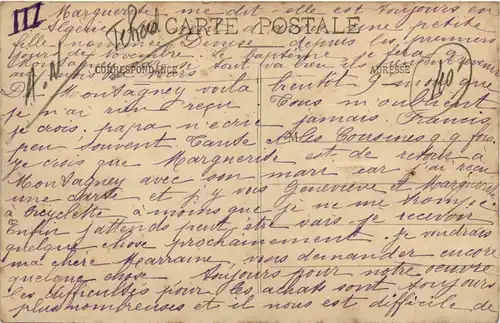 III
Marguerite me dit elle est toujours en
Algérie
Tchad
CARTE POSTALE
une petite
fille nommée Denise depuis les premiers
CORRESPONDANCE
ADRESSE
tout va bien
A. N
40
De Montagney voilà bientôt 9 mois que
je n'ai rien reçu. Tous m'oublient
je crois, papa n'écrie jamais, Francis
peu souvent. Tante & les Cousines q.q. fois.
Je crois que Marguerite est de retour à
Montagney avec son mari car j'ai reçu
une carte et j'y vois Geneviève et Marguerite
à bicyclette à moins que je ne me trompe.
Enfin j'attends peut être vais-je recevoir
quelque chose prochainement je voudrais
ma chère Marraine, vous demander encore
quelque chose toujours pour notre oeuvre
les difficultés pour les achats sont toujours
plus nombreuses et il nous est difficile de